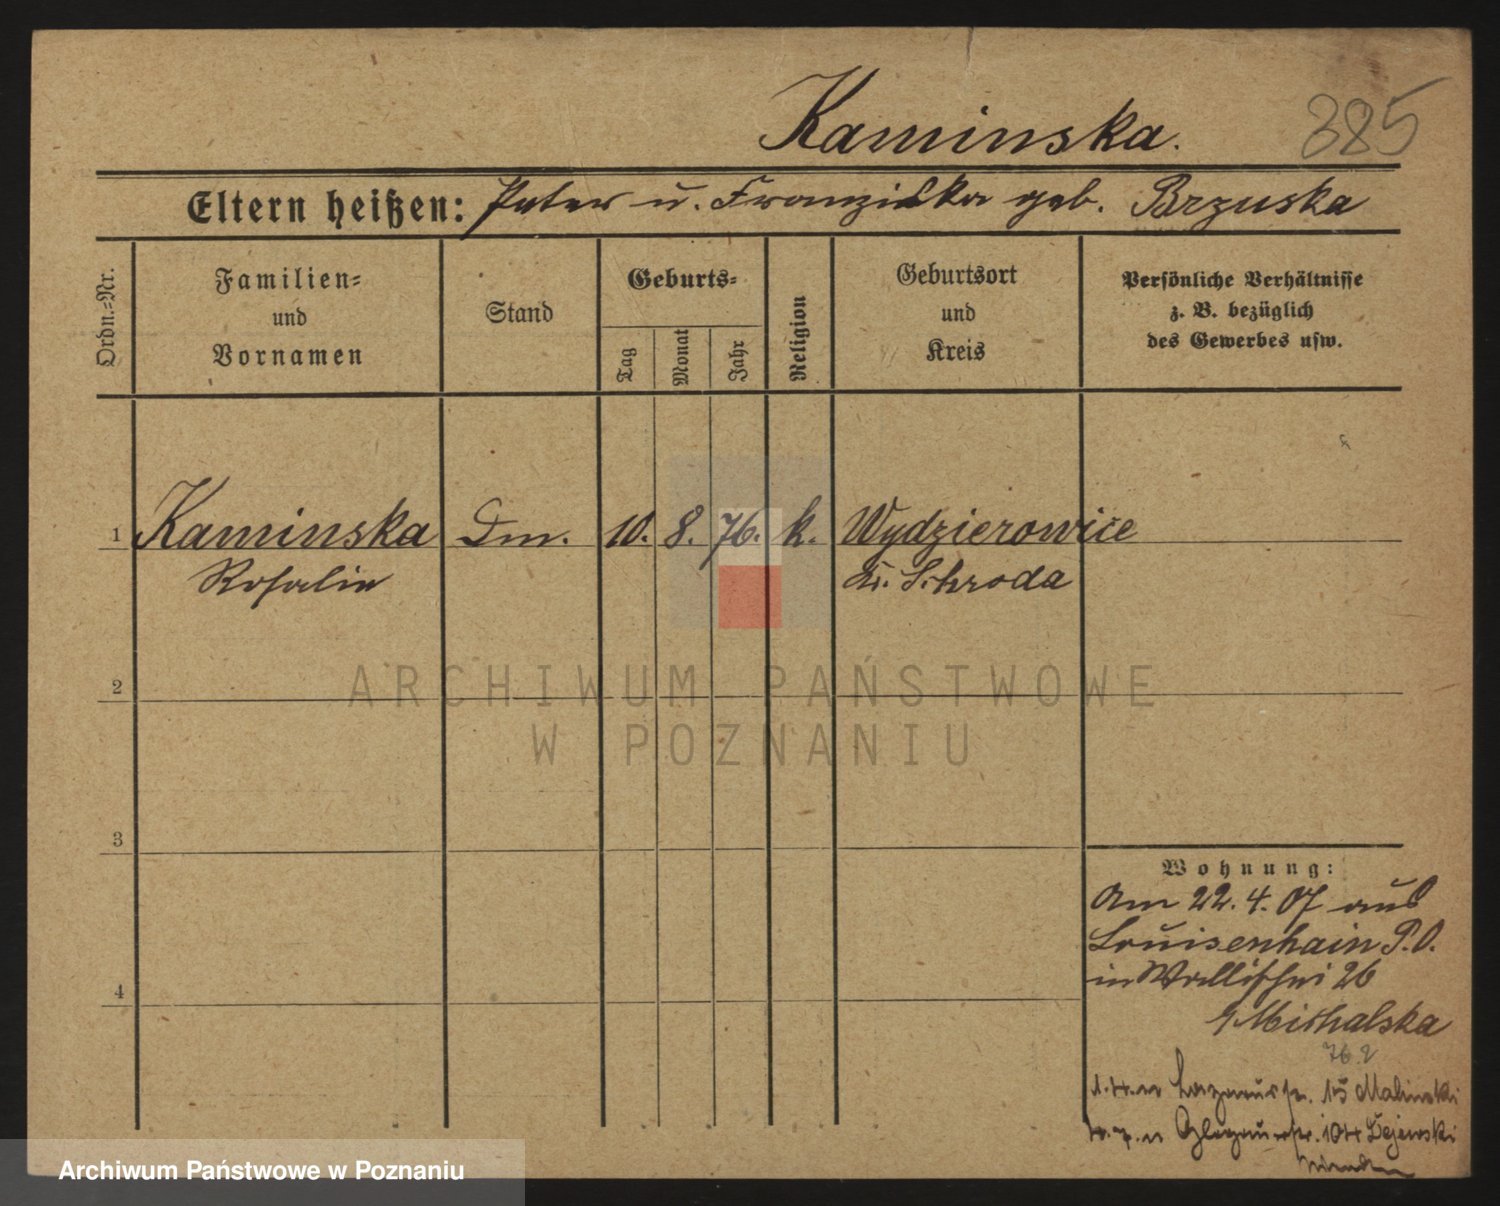 Kaminska.
385
Eltern heißen: Peter u. Franziska geb. Brzuska
Ordn.-Nr.
Familien-
und
Vornamen
Stand
Geburts-
Tag
Monat
Jahr
Religion
Geburtsort
und
Kreis
Persönliche Verhältnisse
z. B. bezüglich
des Gewerbes usw.
1 Kaminska Dm. 10. 8. 76. k. Wydzierowice
Rosalie Kr. Schroda
2
3
4
ARCHIWUM PAŃSTWOWE
W POZNANIU
Wohnung:
Am 22. 4. 07 aus
Louisenhain P. O.
in Wallischei 26
Michalska
1. Lazarusstr. 15 Malinski
Glogauerstr. 104
Archiwum Państwowe w Poznaniu